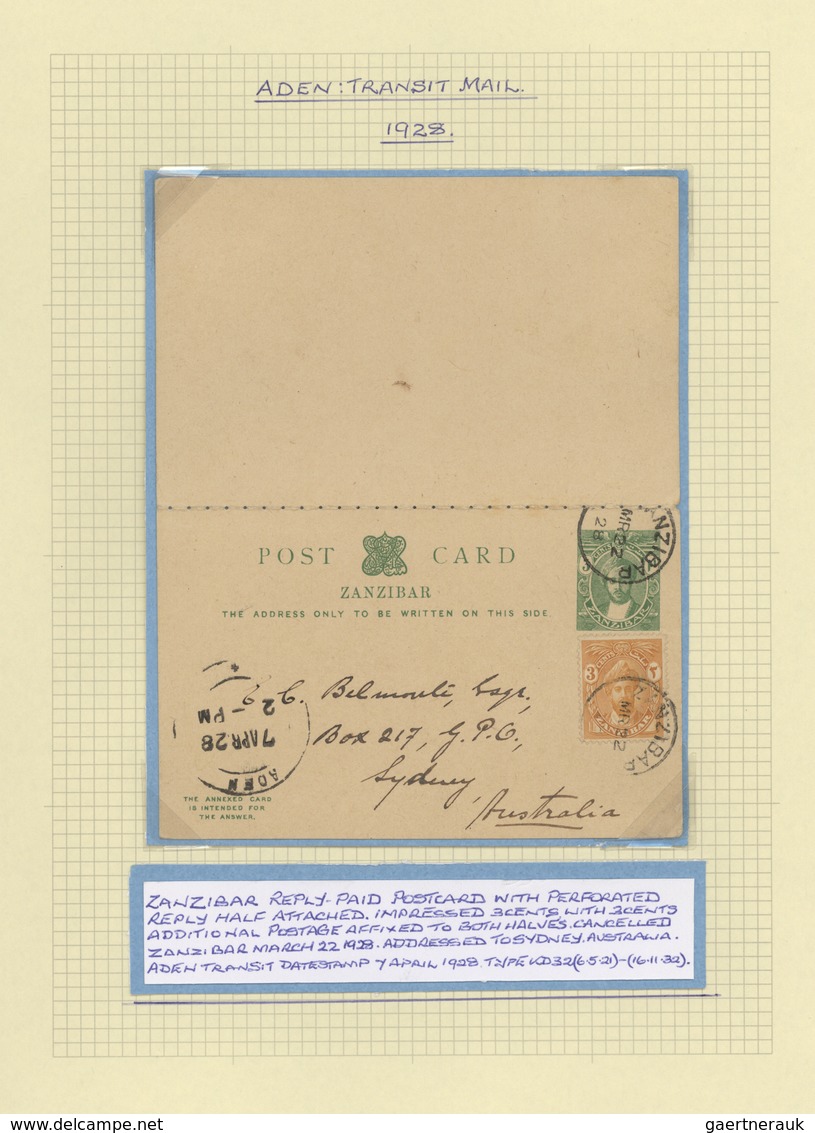 ADEN: TRANSIT MAIL.
1928.
POST CARD
ZANZIBAR
THE ADDRESS ONLY TO BE WRITTEN ON THIS SIDE.
ZANZIBAR
MR 22
28
ZANZIBAR
3 CENTS
ZANZIBAR
ZANZIBAR
MR 22
C. Belmonte, Esqr,
Box 217, G.P.O,
Sydney,
Australia
2 - PM
7 APR 28
ADEN
THE ANNEXED CARD
IS INTENDED FOR
THE ANSWER.
ZANZIBAR REPLY-PAID POSTCARD WITH PERFORATED
REPLY HALF ATTACHED. IMPRESSED 3CENTS WITH 3CENTS
ADDITIONAL POSTAGE AFFIXED TO BOTH HALVES. CANCELLED
ZANZIBAR MARCH 22 1928. ADDRESSED TO SYDNEY. AUSTRALIA.
ADEN TRANSIT DATESTAMP 7 APRIL 1928 TYPE KD32 (6.5.21)-(16.11.32).
gaertnerauk
www.delcampe.net